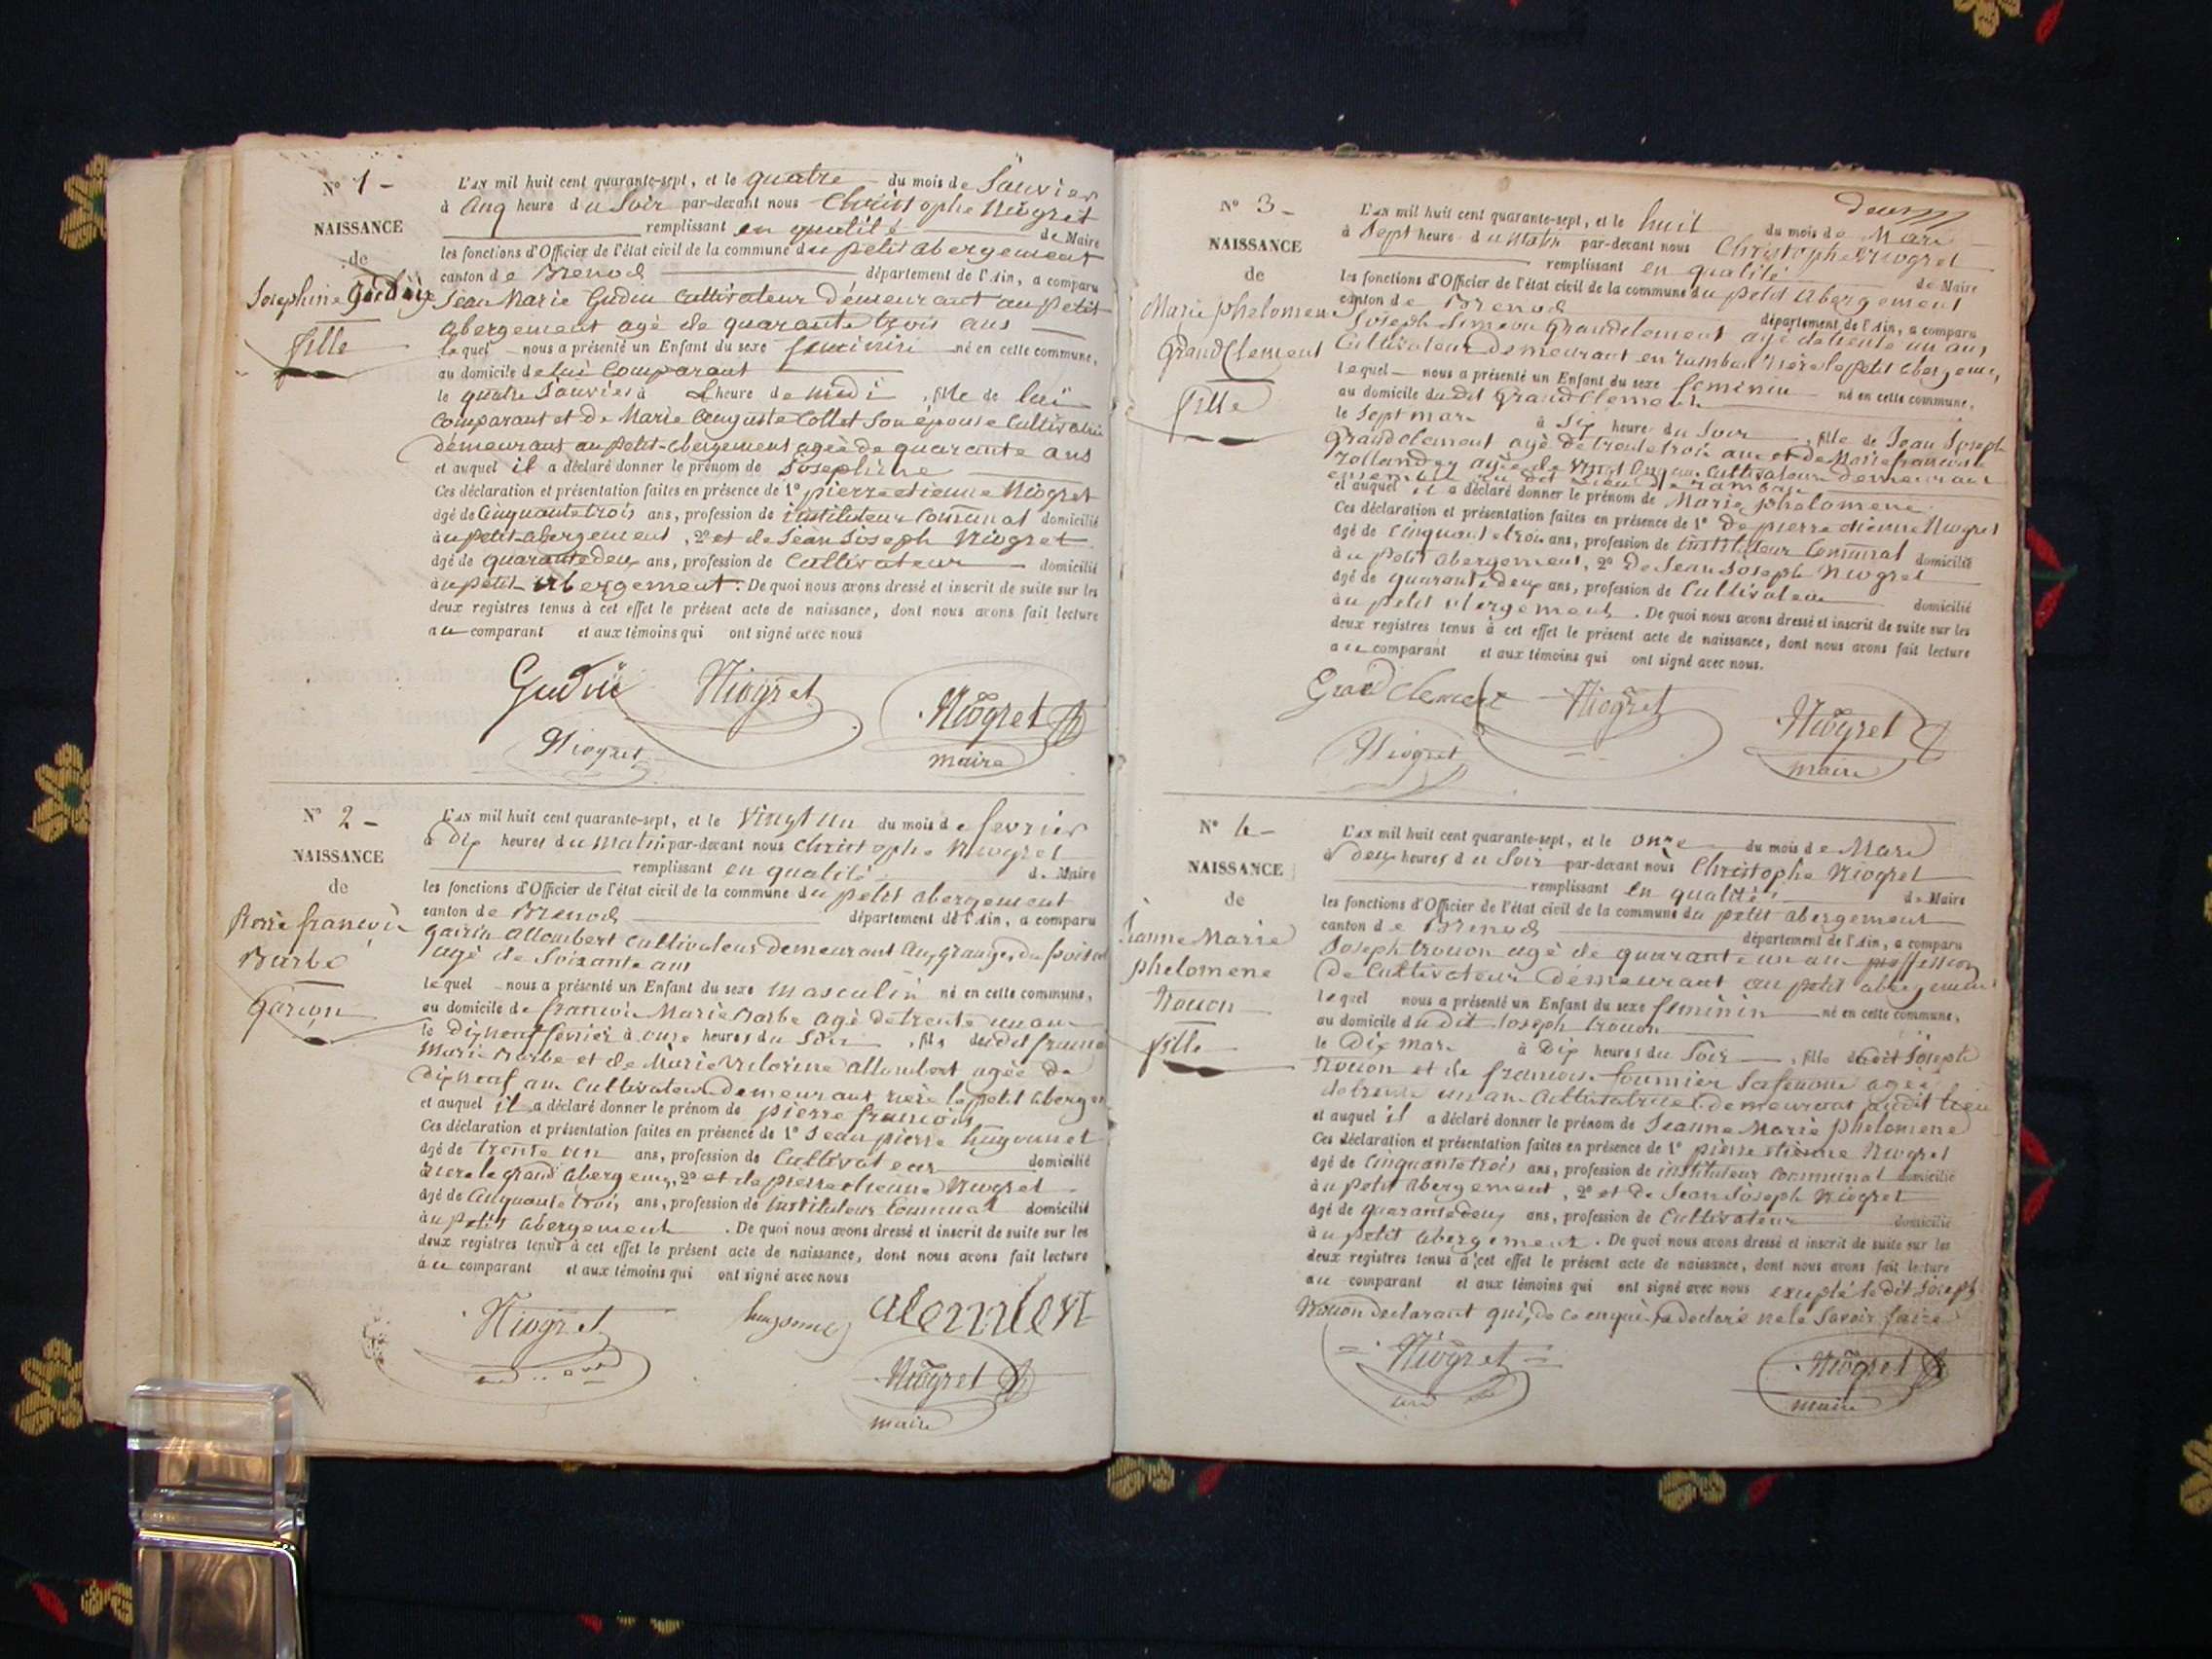 N° 1 -
NAISSANCE
de
Josephine
fille
L'AN mil huit cent quarante-sept, et le quatre du mois de Janvier
à Cinq heure du Soir par-devant nous Christophe Niogret
remplissant en qualité de Maire
les fonctions d'Officier de l'état civil de la commune du petit abergement
canton de Brenod département de l'Ain, a comparu
Jean Marie Gudin Cultivateur démeurant au petit
abergement agé de quarante trois ans
lequel nous a présenté un Enfant du sexe feminin né en cette commune,
au domicile de lui Comparant
le quatre Janvier à L heure de midi , fille de lui
comparant et de Marie Auguste Collet son épouse Cultivatrice
démeurant au petit-abergement agée de quarante ans
et auquel il a déclaré donner le prénom de Josephine
Ces déclaration et présentation faites en présence de 1° pierre etienne Niogret
âgé de Cinquante trois ans, profession de instituteur Communal domicilié
à u petit-abergement , 2° et de Jean Joseph Niogret
âgé de quarante deux ans, profession de Cultivateur domicilié
à u petit abergement . De quoi nous avons dressé et inscrit de suite sur les
deux registres tenus à cet effet le présent acte de naissance, dont nous avons fait lecture
au comparant et aux témoins qui ont signé avec nous
Gudin Niogret Niogret
Niogret maire
N° 2 -
NAISSANCE
de
Pierre francois
Barbe
Garçon
L'AN mil huit cent quarante-sept, et le vingt un du mois de fevrier
à dix heures du matin par-devant nous Christophe Niogret
remplissant en qualité de Maire
les fonctions d'Officier de l'état civil de la commune du petit abergement
canton de Brenod département de l'Ain, a comparu
allombert Cultivateur demeurant aux granges du
agé de Soixante ans
lequel nous a présenté un Enfant du sexe masculin né en cette commune,
au domicile de francois Marie Barbe agé de trente un ans
le dixneuf fevrier à onze heures du Soir , fils dudit
Marie Barbe et de Marie allombert agée de
dixneuf ans Cultivateurs demeurant rière le petit
et auquel il a déclaré donner le prénom de pierre francois
Ces déclaration et présentation faites en présence de 1° Jean pierre hugonnet
âgé de trente un ans, profession de Cultivateur domicilié
à rière le grand , 2° et de pierre etienne Niogret
âgé de Cinquante trois ans, profession de instituteur Communal domicilié
à u petit abergement . De quoi nous avons dressé et inscrit de suite sur les
deux registres tenus à cet effet le présent acte de naissance, dont nous avons fait lecture
au comparant et aux témoins qui ont signé avec nous
Niogret
Niogret
maire
deux
N° 3 -
NAISSANCE
de
Marie phelomene
GrandClement
fille
L'AN mil huit cent quarante-sept, et le huit du mois de Mars
à Sept heure du Matin par-devant nous Christophe Niogret
remplissant en qualité de Maire
les fonctions d'Officier de l'état civil de la commune du petit abergement
canton de Brenod département de l'Ain, a comparu
Joseph Simeon Grandclement agé de trente un ans
Cultivateur demeurant en rière le petit
lequel nous a présenté un Enfant du sexe feminin né en cette commune,
au domicile du dit grandclement
le Sept mars à Six heure du Soir , fille de Jean Joseph
Grandclement agé de trente trois ans et de Marie francoise
agée de vingt Cinq ans Cultivateurs demeurant
ensemble
et auquel il a déclaré donner le prénom de Marie phelomene
Ces déclaration et présentation faites en présence de 1° de pierre etienne Niogret
âgé de Cinquante trois ans, profession de instituteur Communal domicilié
à u petit abergement, 2° de Jean Joseph Niogret
âgé de quarante deux ans, profession de Cultivateur domicilié
à u petit abergement . De quoi nous avons dressé et inscrit de suite sur les
deux registres tenus à cet effet le présent acte de naissance, dont nous avons fait lecture
au comparant et aux témoins qui ont signé avec nous.
Grandclement Niogret Niogret
Niogret maire
N° 4 -
NAISSANCE
de
Jeanne Marie
phelomene
Trouon
fille
L'AN mil huit cent quarante-sept, et le onze du mois de Mars
à deux heures du Soir par-devant nous Christophe Niogret
remplissant en qualité de Maire
les fonctions d'Officier de l'état civil de la commune du petit abergement
canton de Brenod département de l'Ain, a comparu
Joseph trouon agé de quarante un ans proffession
de Cultivateur démeurant au petit abergement
lequel nous a présenté un Enfant du sexe feminin né en cette commune,
au domicile du dit Joseph trouon
le dix mars à dix heures du Soir , fille dudit Joseph
Trouon et de francoise fournier Sa femme agée
de trente un ans Cultivatrice demeurant audit lieu
et auquel il a déclaré donner le prénom de Jeanne Marie phelomene
Ces déclaration et présentation faites en présence de 1° pierre etienne Niogret
âgé de Cinquante trois ans, profession de instituteur Communal domicilié
à u petit abergement , 2° et de Jean Joseph Niogret
âgé de quarante deux ans, profession de Cultivateur domicilié
à u petit abergement . De quoi nous avons dressé et inscrit de suite sur les
deux registres tenus à cet effet le présent acte de naissance, dont nous avons fait lecture
au comparant et aux témoins qui ont signé avec nous excepté le dit Joseph
Trouon declarant qui, de ce enquis a declaré ne le Savoir faire
Niogret Niogret
maire